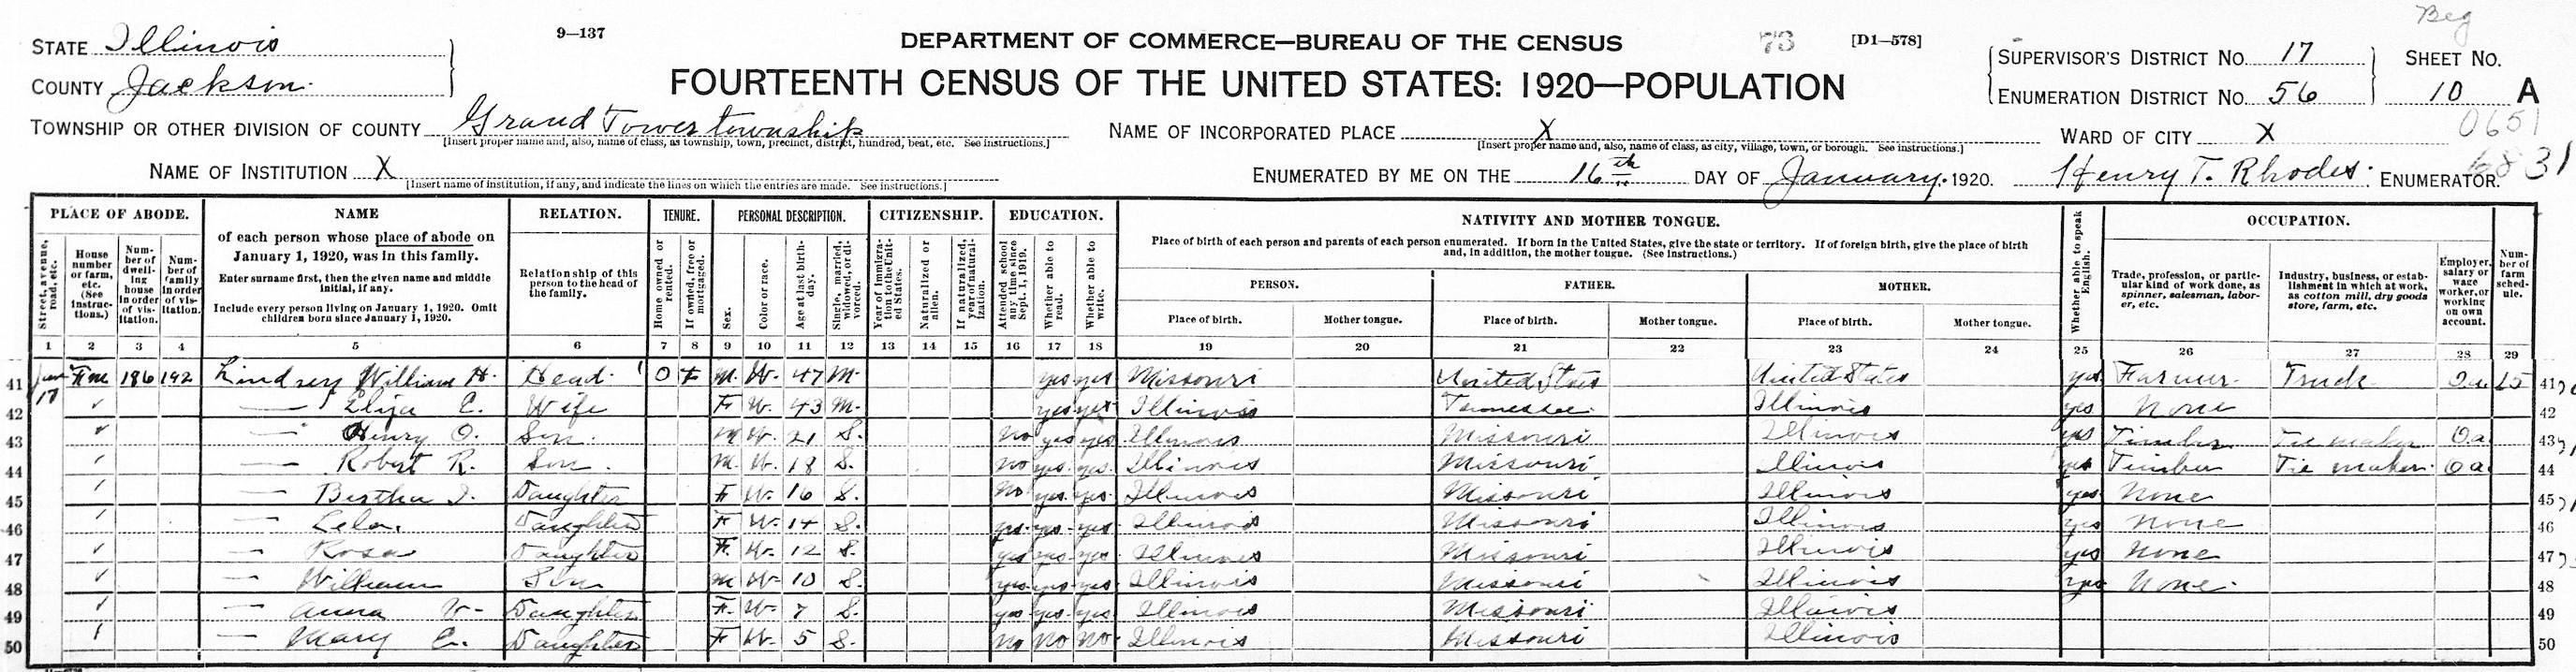 Beg
STATE Illinois 9—137 DEPARTMENT OF COMMERCE—BUREAU OF THE CENSUS 73 [D1—578] SUPERVISOR'S DISTRICT NO. 17 SHEET NO.
COUNTY Jackson FOURTEENTH CENSUS OF THE UNITED STATES: 1920—POPULATION ENUMERATION DISTRICT NO. 56 10 A
TOWNSHIP OR OTHER DIVISION OF COUNTY Grand Tower township NAME OF INCORPORATED PLACE X WARD OF CITY X 0651
[Insert proper name and, also, name of class, as township, town, precinct, district, hundred, beat, etc. See instructions.] [Insert proper name and, also, name of class, as city, village, town, or borough. See instructions.]
NAME OF INSTITUTION X ENUMERATED BY ME ON THE 16th DAY OF January, 1920. Henry T. Rhodes. ENUMERATOR. 6831
[Insert name of institution, if any, and indicate the lines on which the entries are made. See instructions.]
PLACE OF ABODE. NAME RELATION. TENURE. PERSONAL DESCRIPTION. CITIZENSHIP. EDUCATION. NATIVITY AND MOTHER TONGUE. OCCUPATION.
Street, avenue, road, etc.
House number or farm, etc. (See instructions.)
Number of dwelling house in order of visitation.
Number of family in order of visitation.
of each person whose place of abode on
January 1, 1920, was in this family.
Enter surname first, then the given name and middle
initial, if any.
Include every person living on January 1, 1920. Omit
children born since January 1, 1920.
Relationship of this
person to the head of
the family.
Home owned or rented.
If owned, free or mortgaged.
Sex.
Color or race.
Age at last birthday.
Single, married, widowed, or divorced.
Year of immigration to the United States.
Naturalized or alien.
If naturalized, year of naturalization.
Attended school any time since Sept. 1, 1919.
Whether able to read.
Whether able to write.
Place of birth of each person and parents of each person enumerated. If born in the United States, give the state or territory. If of foreign birth, give the place of birth
and, in addition, the mother tongue. (See instructions.)
PERSON. FATHER. MOTHER.
Place of birth. Mother tongue. Place of birth. Mother tongue. Place of birth. Mother tongue.
Whether able to speak English.
Trade, profession, or particular kind of work done, as spinner, salesman, laborer, etc.
Industry, business, or establishment in which at work, as cotton mill, dry goods store, farm, etc.
Employer, salary or wage worker, or working on own account.
Number of farm schedule.
1 2 3 4 5 6 7 8 9 10 11 12 13 14 15 16 17 18 19 20 21 22 23 24 25 26 27 28 29
41 Fm 186 192 Lindsey William H. Head 1 O F M. W. 47 M. yes yes Missouri United States United States yes Farmer Truck Oa 15 41
17
42 — Eliza E. Wife F W. 43 M. yes yes Illinois Tennessee Illinois yes None 42
43 — Henry O. Son. M W. 21 S. No yes yes Illinois Missouri Illinois yes Timber Tie maker Oa 43
44 — Robert R. Son. M. W. 18 S. no yes. yes. Illinois Missouri Illinois yes Timber Tie maker. Oa 44
45 — Bertha I. Daughter F W. 16 S. No yes. yes. Illinois Missouri Illinois yes None 45
46 — Lela. Daughter F W. 14 S. yes. yes. yes. Illinois Missouri Illinois yes None 46
47 — Rosa Daughter F. W. 12 S. yes yes yes Illinois Missouri Illinois yes None 47
48 — William Son M W. 10 S. yes yes yes. Illinois Missouri Illinois yes None. 48
49 — Anna V. Daughter F. W. 7 S. yes yes. yes. Illinois Missouri Illinois 49
50 — Mary E. Daughter F W. 5 S. No No No Illinois Missouri Illinois 50